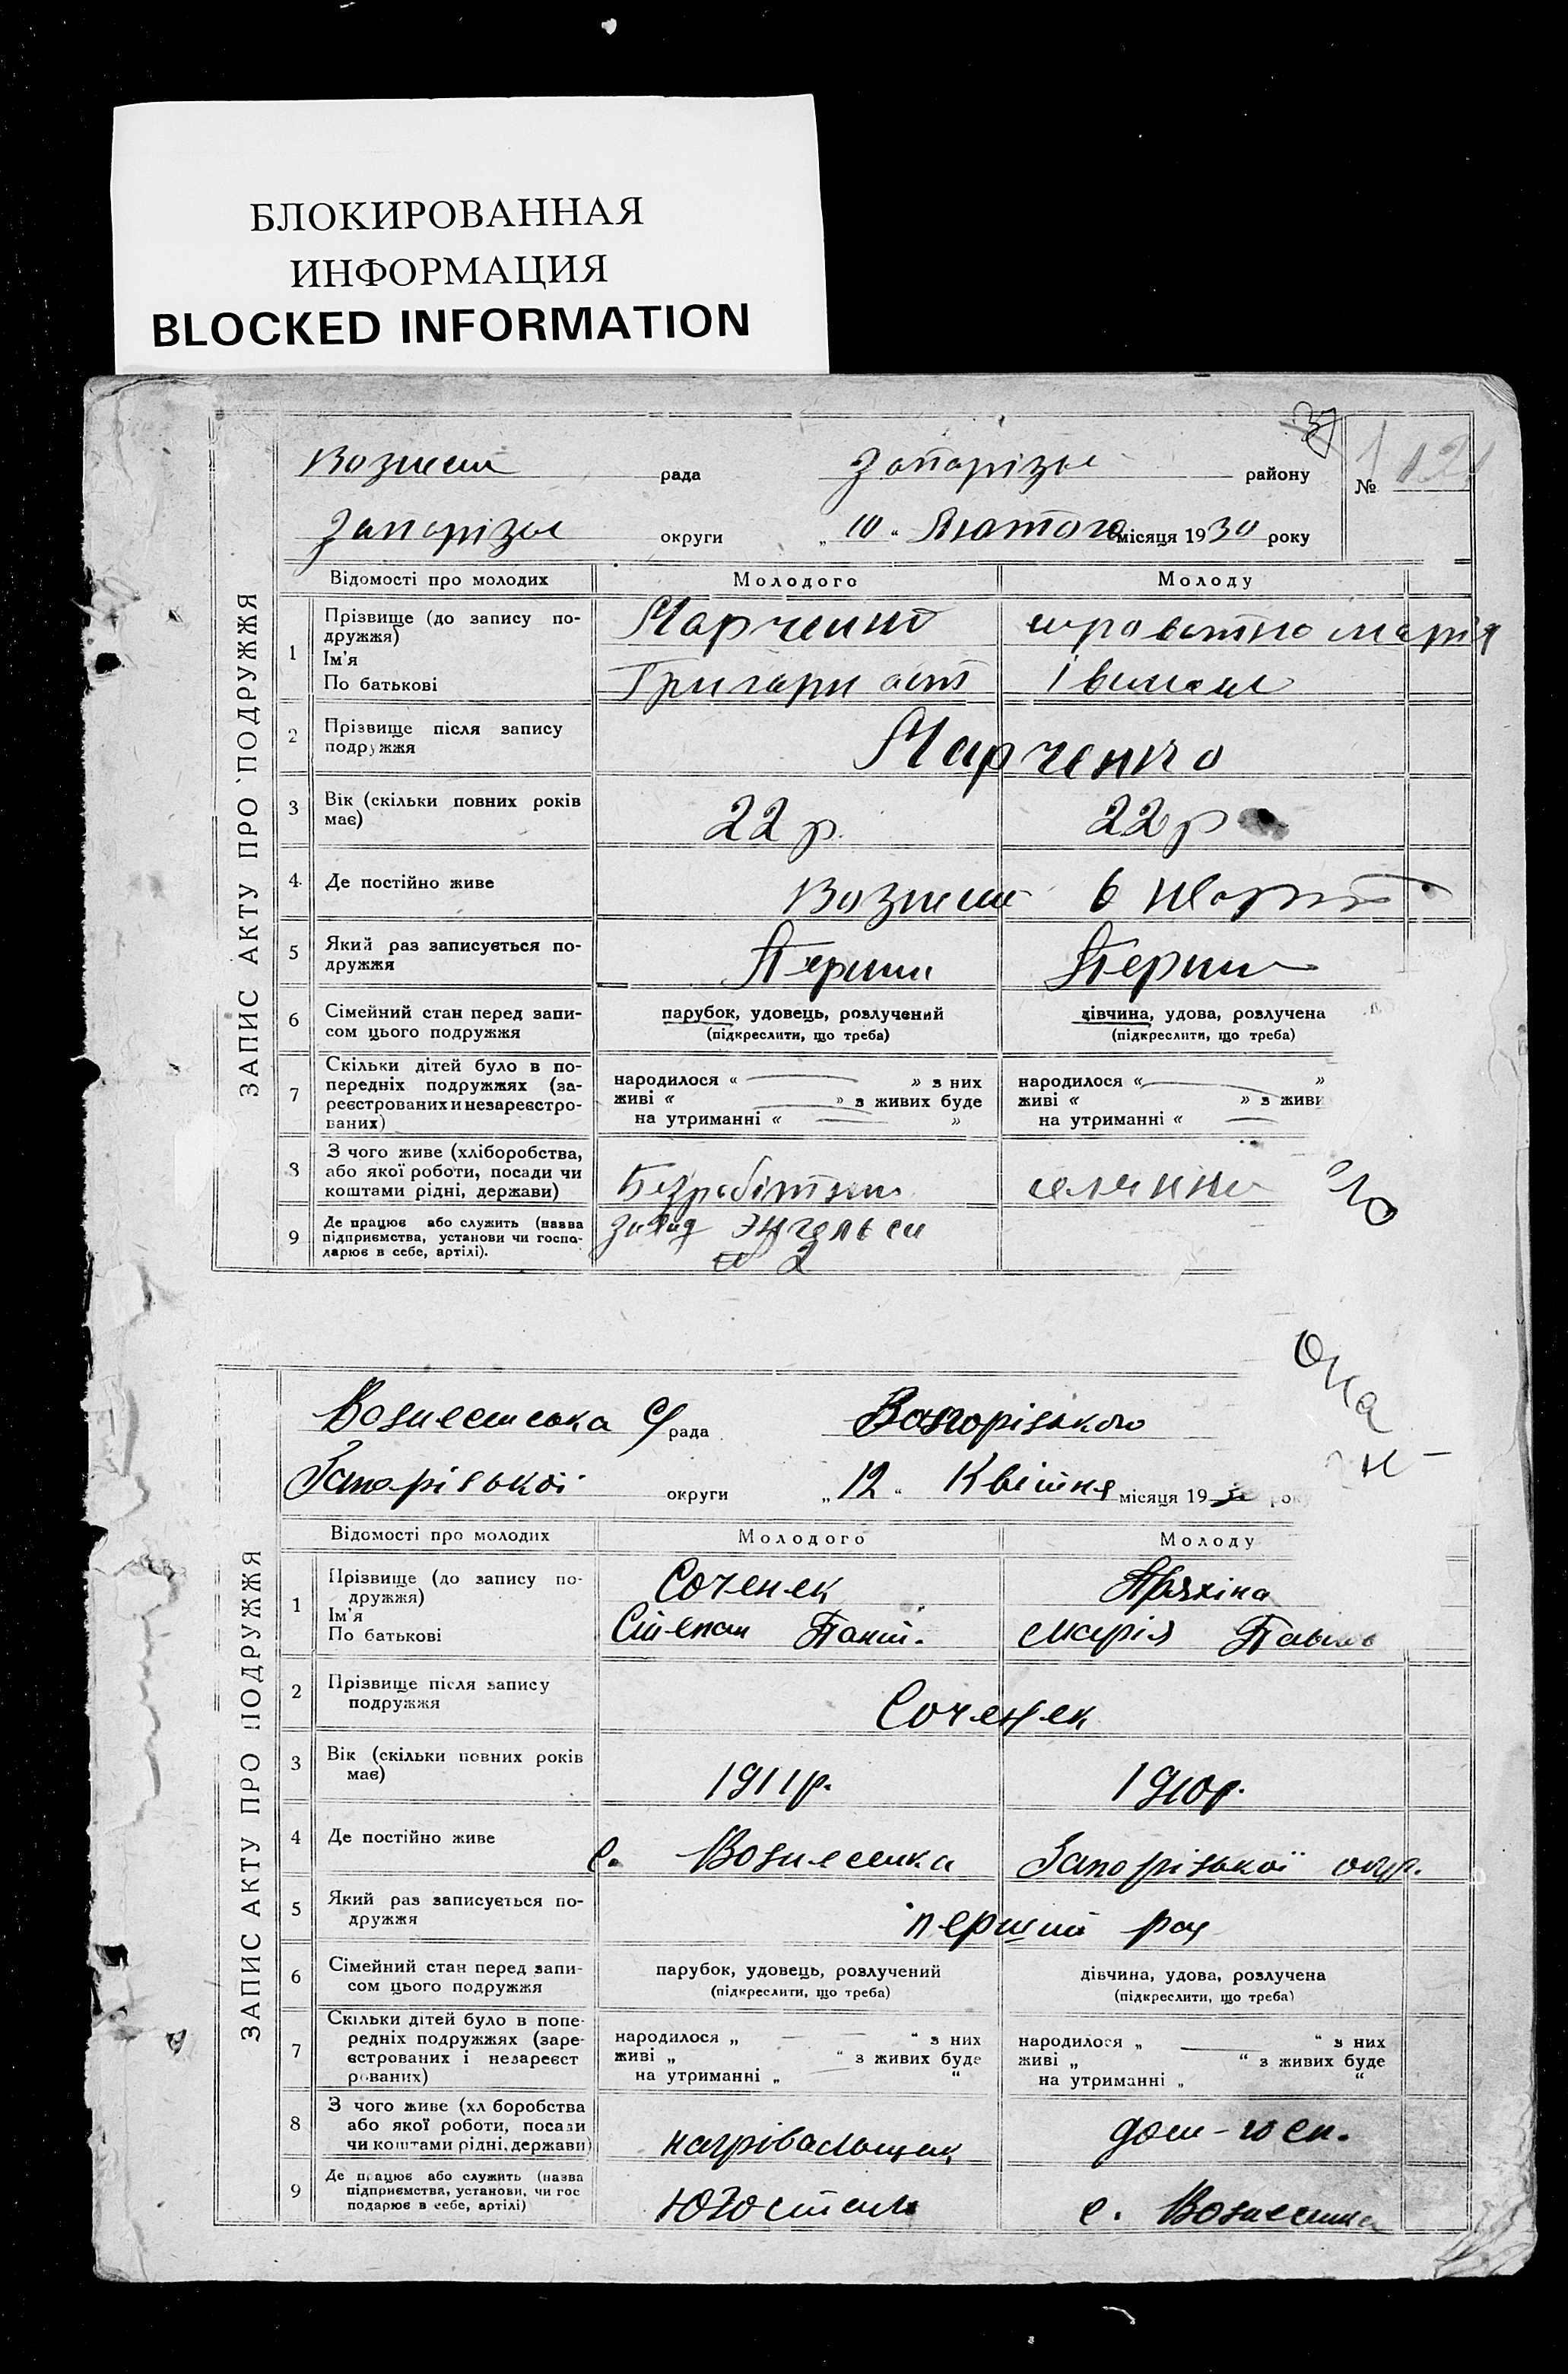 БЛОКИРОВАННАЯ
ИНФОРМАЦИЯ
BLOCKED INFORMATION
37
рада району
№
округи „ 10 “ Лютого місяця 1930 року
ЗАПИС АКТУ ПРО ПОДРУЖЖЯ
Відомості про молодих Молодого Молоду
1 Прізвище (до запису по-
дружжя)
Ім'я
По батькові
Марченко Марія
2 Прізвище після запису
подружжя
Марченко
3 Вік (скільки повних років
має)
22 р. 22 р
4 Де постійно живе
5 Який раз записується по-
дружжя
6 Сімейний стан перед запи-
сом цього подружжя
парубок, удовець, розлучений дівчина, удова, розлучена
(підкреслити, що треба) (підкреслити, що треба)
7 Скільки дітей було в по-
передніх подружжях (за-
реєстрованих и незареєстро-
ваних)
народилося « » з них народилося « »
живі « » з живих буде живі « » з живи
на утриманні « » на утриманні «
8 З чого живе (хліборобства,
або якої роботи, посади чи
коштами рідні, держави)
9 Де працює або служить (назва
підприємства, установи чи госпо-
дарює в себе, артілі).
2
рада Запорізького
Запорізької округи „ 12 “ Квітня місяця 19 року
ЗАПИС АКТУ ПРО ПОДРУЖЖЯ
Відомості про молодих Молодого Молоду
1 Прізвище (до запису по-
дружжя)
Ім'я
По батькові
Соченек
Степан Марія
2 Прізвище після запису
подружжя
Соченек
3 Вік (скільки повних років
має)
1911р. 1910р.
4 Де постійно живе
с. Вознесенка Запорізької окр.
5 Який раз записується по-
дружжя
перший раз
6 Сімейний стан перед запи-
сом цього подружжя
парубок, удовець, розлучений дівчина, удова, розлучена
(підкреслити, що треба) (підкреслити, що треба)
7 Скільки дітей було в попе-
редніх подружжях (заре-
єстрованих і незареєст
рованих)
народилося „ “ з них народилося „ “ з них
живі „ “ з живих буде живі „ “ з живих буде
на утриманні „ “ на утриманні „ “
8 З чого живе (хл боробства
або якої роботи, посади
чи коштами рідні, держави)
дом-госп.
9 Де працює або служить (назва
підприємства, установи, чи гос
подарює в себе, артілі)
Югосталь с. Вознесенка